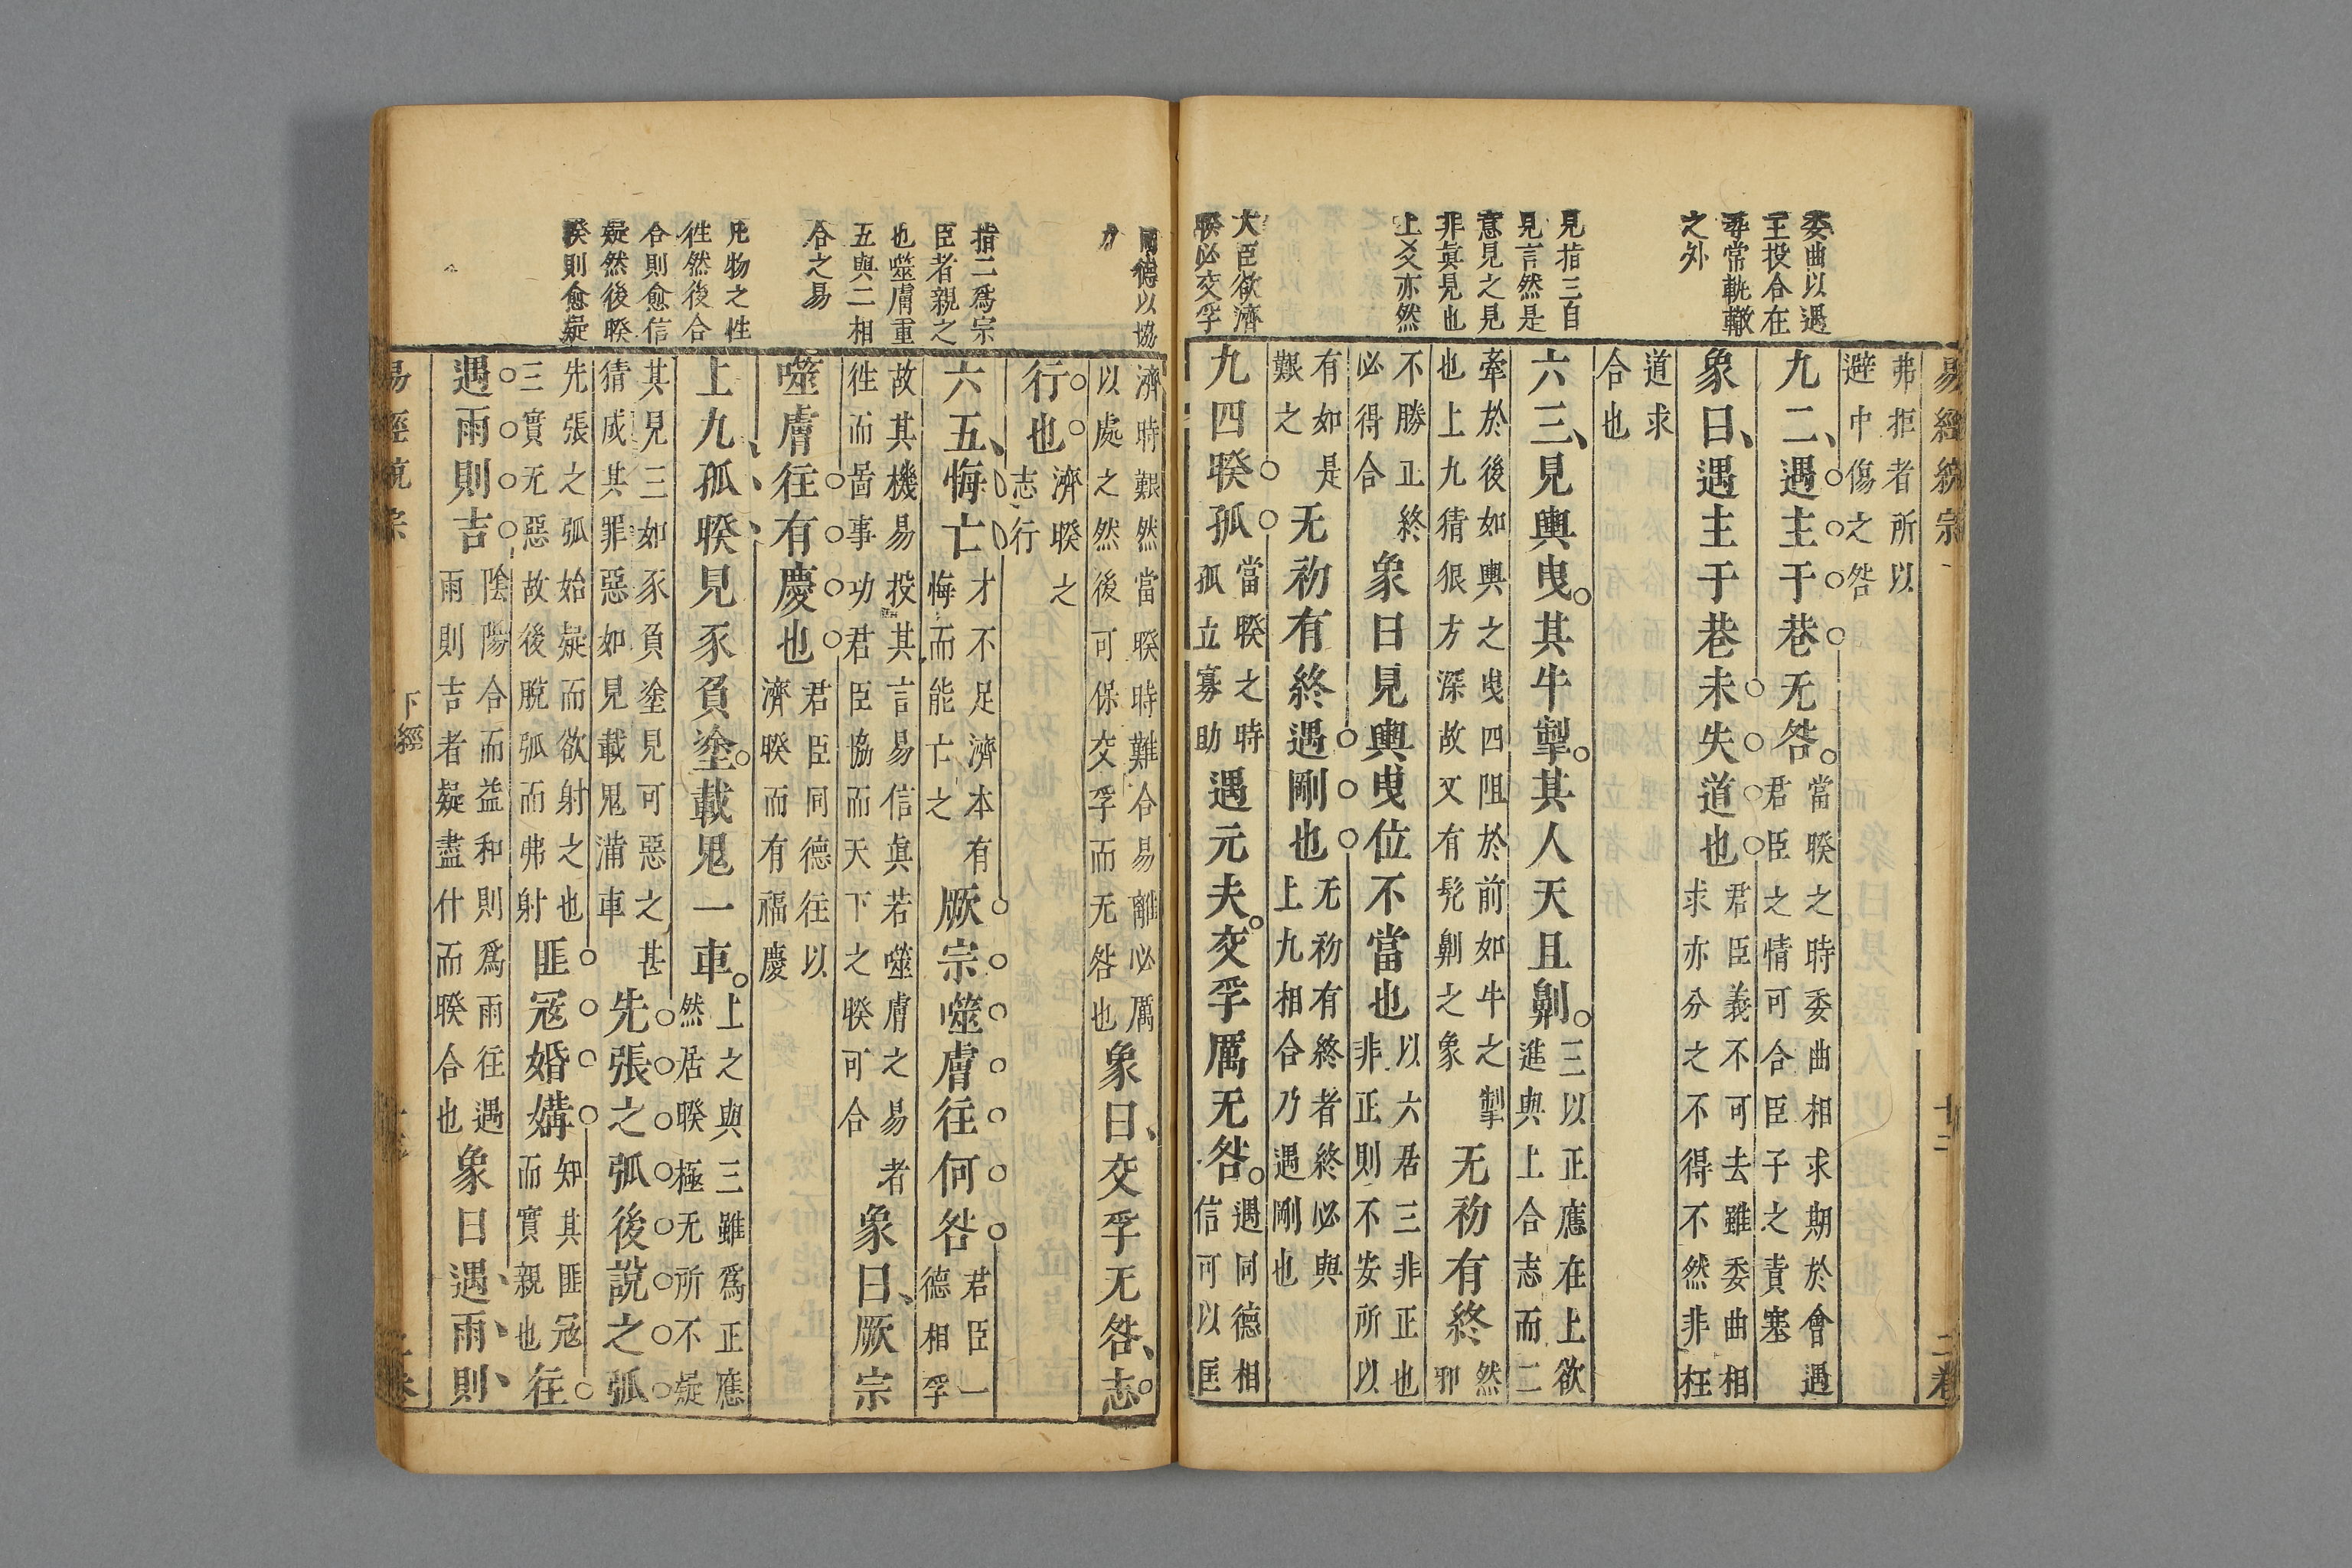 委曲以遇
主投合在
尋常軌轍
之外
見指三自
見言然是
意見之見
非眞見也
上爻亦然
大臣欲濟
睽必交孚
易經統宗 十二 二卷
弗拒者所以
避中傷之咎
九二、遇主于巷无咎。
當睽之時委曲相求期於會遇
君臣之情可合臣子之責塞
象曰、遇主于巷未失道也
君臣義不可去雖委曲相
求亦分之不得不然非枉
道求
合也
六三、見輿曳。其牛掣。其人天且劓。
三以正應在上欲
進與上合志而二
牽於後如輿之曳四阻於前如牛之掣
也上九猜狠方深故又有髡劓之象
无初有終
然邪
不勝正終
必得合
象曰見輿曳位不當也
以六居三非正也
非正則不安所以
有如是
艱之
无初有終遇剛也
无初有終者終必與
上九相合乃遇剛也
九四睽孤
當睽之時
孤立寡助
遇元夫。交孚厲无咎。
遇同德相
信可以匡
同德以協
力
指二爲宗
臣者親之
也噬膚重
五與二相
合之易
凡物之性
徃然後合
合則愈信
疑然後睽
睽則愈疑
濟時艱然當睽時難合易離必厲
以處之然後可保交孚而无咎也
象曰、交孚无咎、志。
行也。
濟睽之
志行
六五、悔亡
才不足濟本有
悔而能亡之
厥宗噬膚往何咎
君臣一
德相孚
故其機易投其言易信眞若噬膚之易者
徃而啚事功君臣協而天下之睽可合
象曰、厥宗
噬膚往有慶也
君臣同德往以
濟睽而有福慶
上九、孤、睽、見豕負塗。載鬼一車。
上之與三雖爲正應
然居睽極无所不疑
其見三如豕負塗見可惡之甚
猜成其罪惡如見載鬼滿車
先張之弧後說之弧
先張之弧始疑而欲射之也
三實无惡故後脫弧而弗射
匪冦婚媾
知其匪冦
而實親也
往
遇雨則吉
陰陽合而益和則爲雨往遇
雨則吉者疑盡什而睽合也
象曰遇、雨、則、
易經統宗 下經